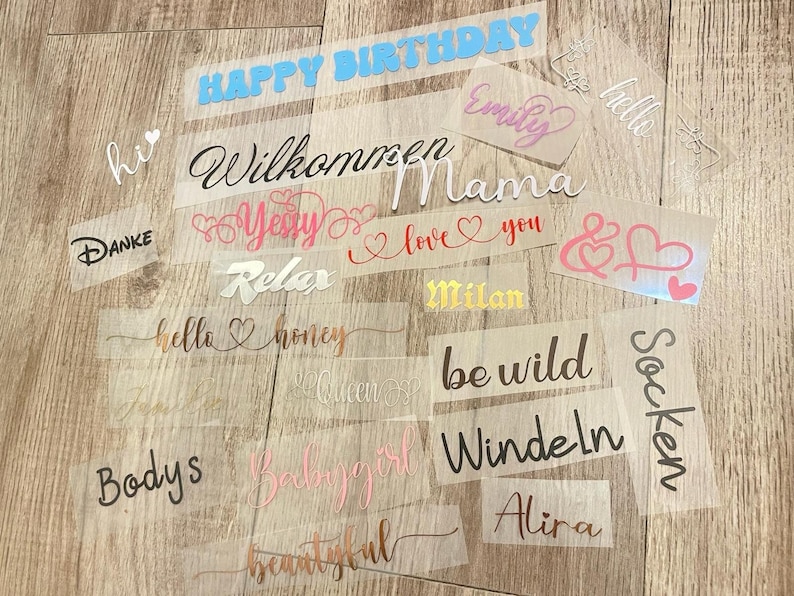 HAPPY BIRTHDAY
Emily
hello
hi
Wilkommen
Mama
Yessy
love you
DANKE
&
Relax
Milan
hello honey
be wild
Socken
Queen
Windeln
Bodys
Babygirl
Alira
beautyful